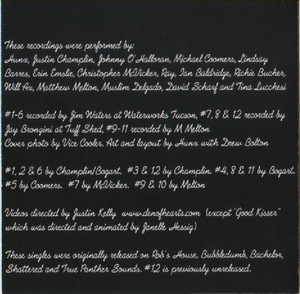 These recordings were performed by:
Hunx, Justin Champlin, Johnny O'Halloran, Michael Coomers, Lindsay
Barres, Erin Emslie, Christopher McVicker, Ray, Ian Baldridge, Richie Bucher,
Will Ax, Matthew Melton, Muslim Delgado, David Scharf and Tina Lucchesi
#1-6 recorded by Jim Waters at Waterworks Tucson, #7, 8 & 12 recorded by
Jay Brongini at Tuff Shed, #9-11 recorded by M Melton
Cover photo by Vice Cooler. Art and layout by Hunx with Drew Bolton
#1, 2 & 6 by Champlin/Bogart. #3 & 12 by Champlin. #4, 8 & 11 by Bogart.
#5 by Coomers. #7 by McVicker. #9 & 10 by Melton
Videos directed by Justin Kelly www.denofhearts.com (except "Good Kisser"
which was directed and animated by Janelle Hessig)
These singles were originally released on Rob's House, Bubbledumb, Bachelor,
Shattered and True Panther Sounds. #12 is previously unreleased.